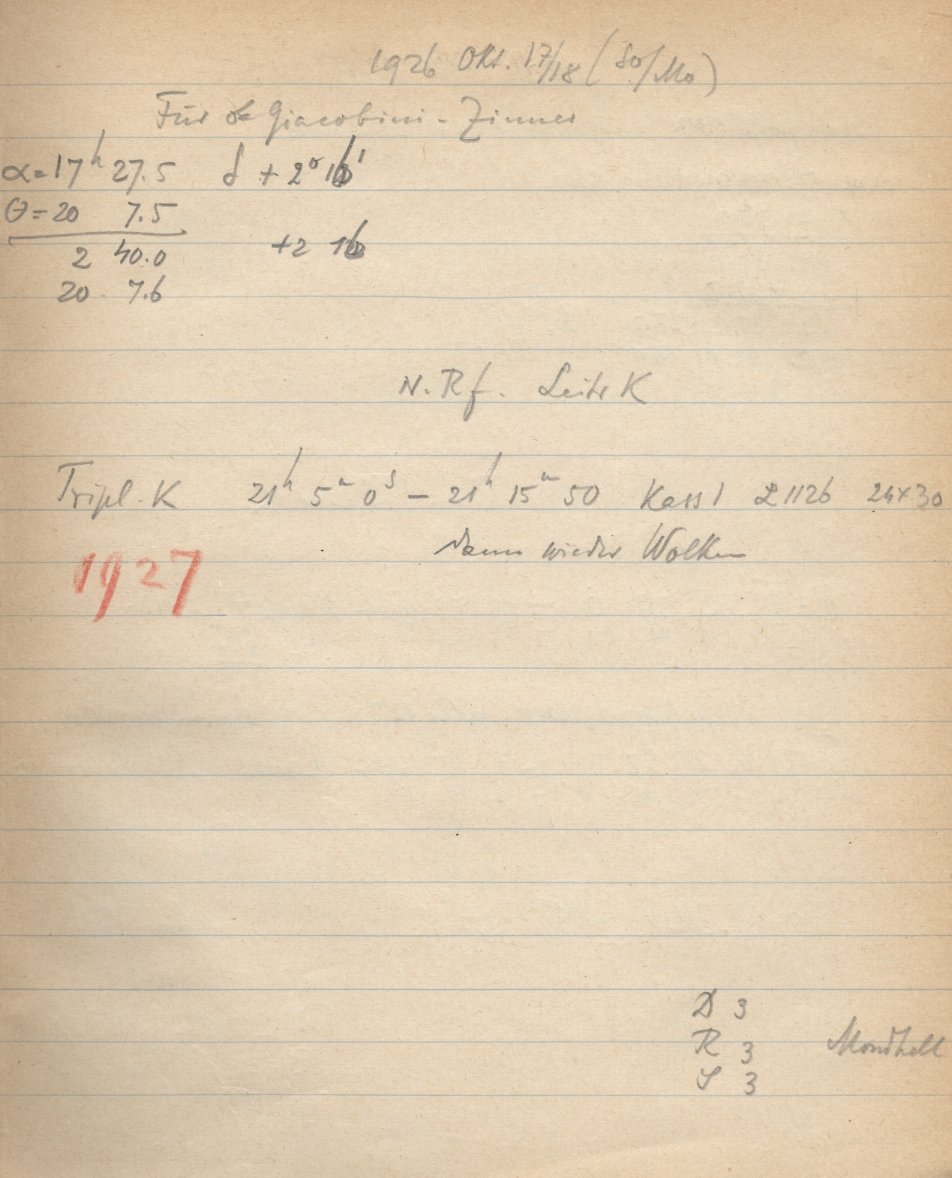 1926 Okt. 17/18 (So/Mo)
Für Giacobini-Zinner
α = 17ʰ 27.5 δ + 2° 16'
Θ = 20 7.5
2 40.0 +2 16
20 7.6
N. Rf. Leitr K
Tripl. K 21ʰ 5ᵐ 0ˢ – 21ʰ 15ᵐ 50 Kass I L 1126 24×30
dann wieder Wolken
1927
D 3
R 3 Mondhell
S 3